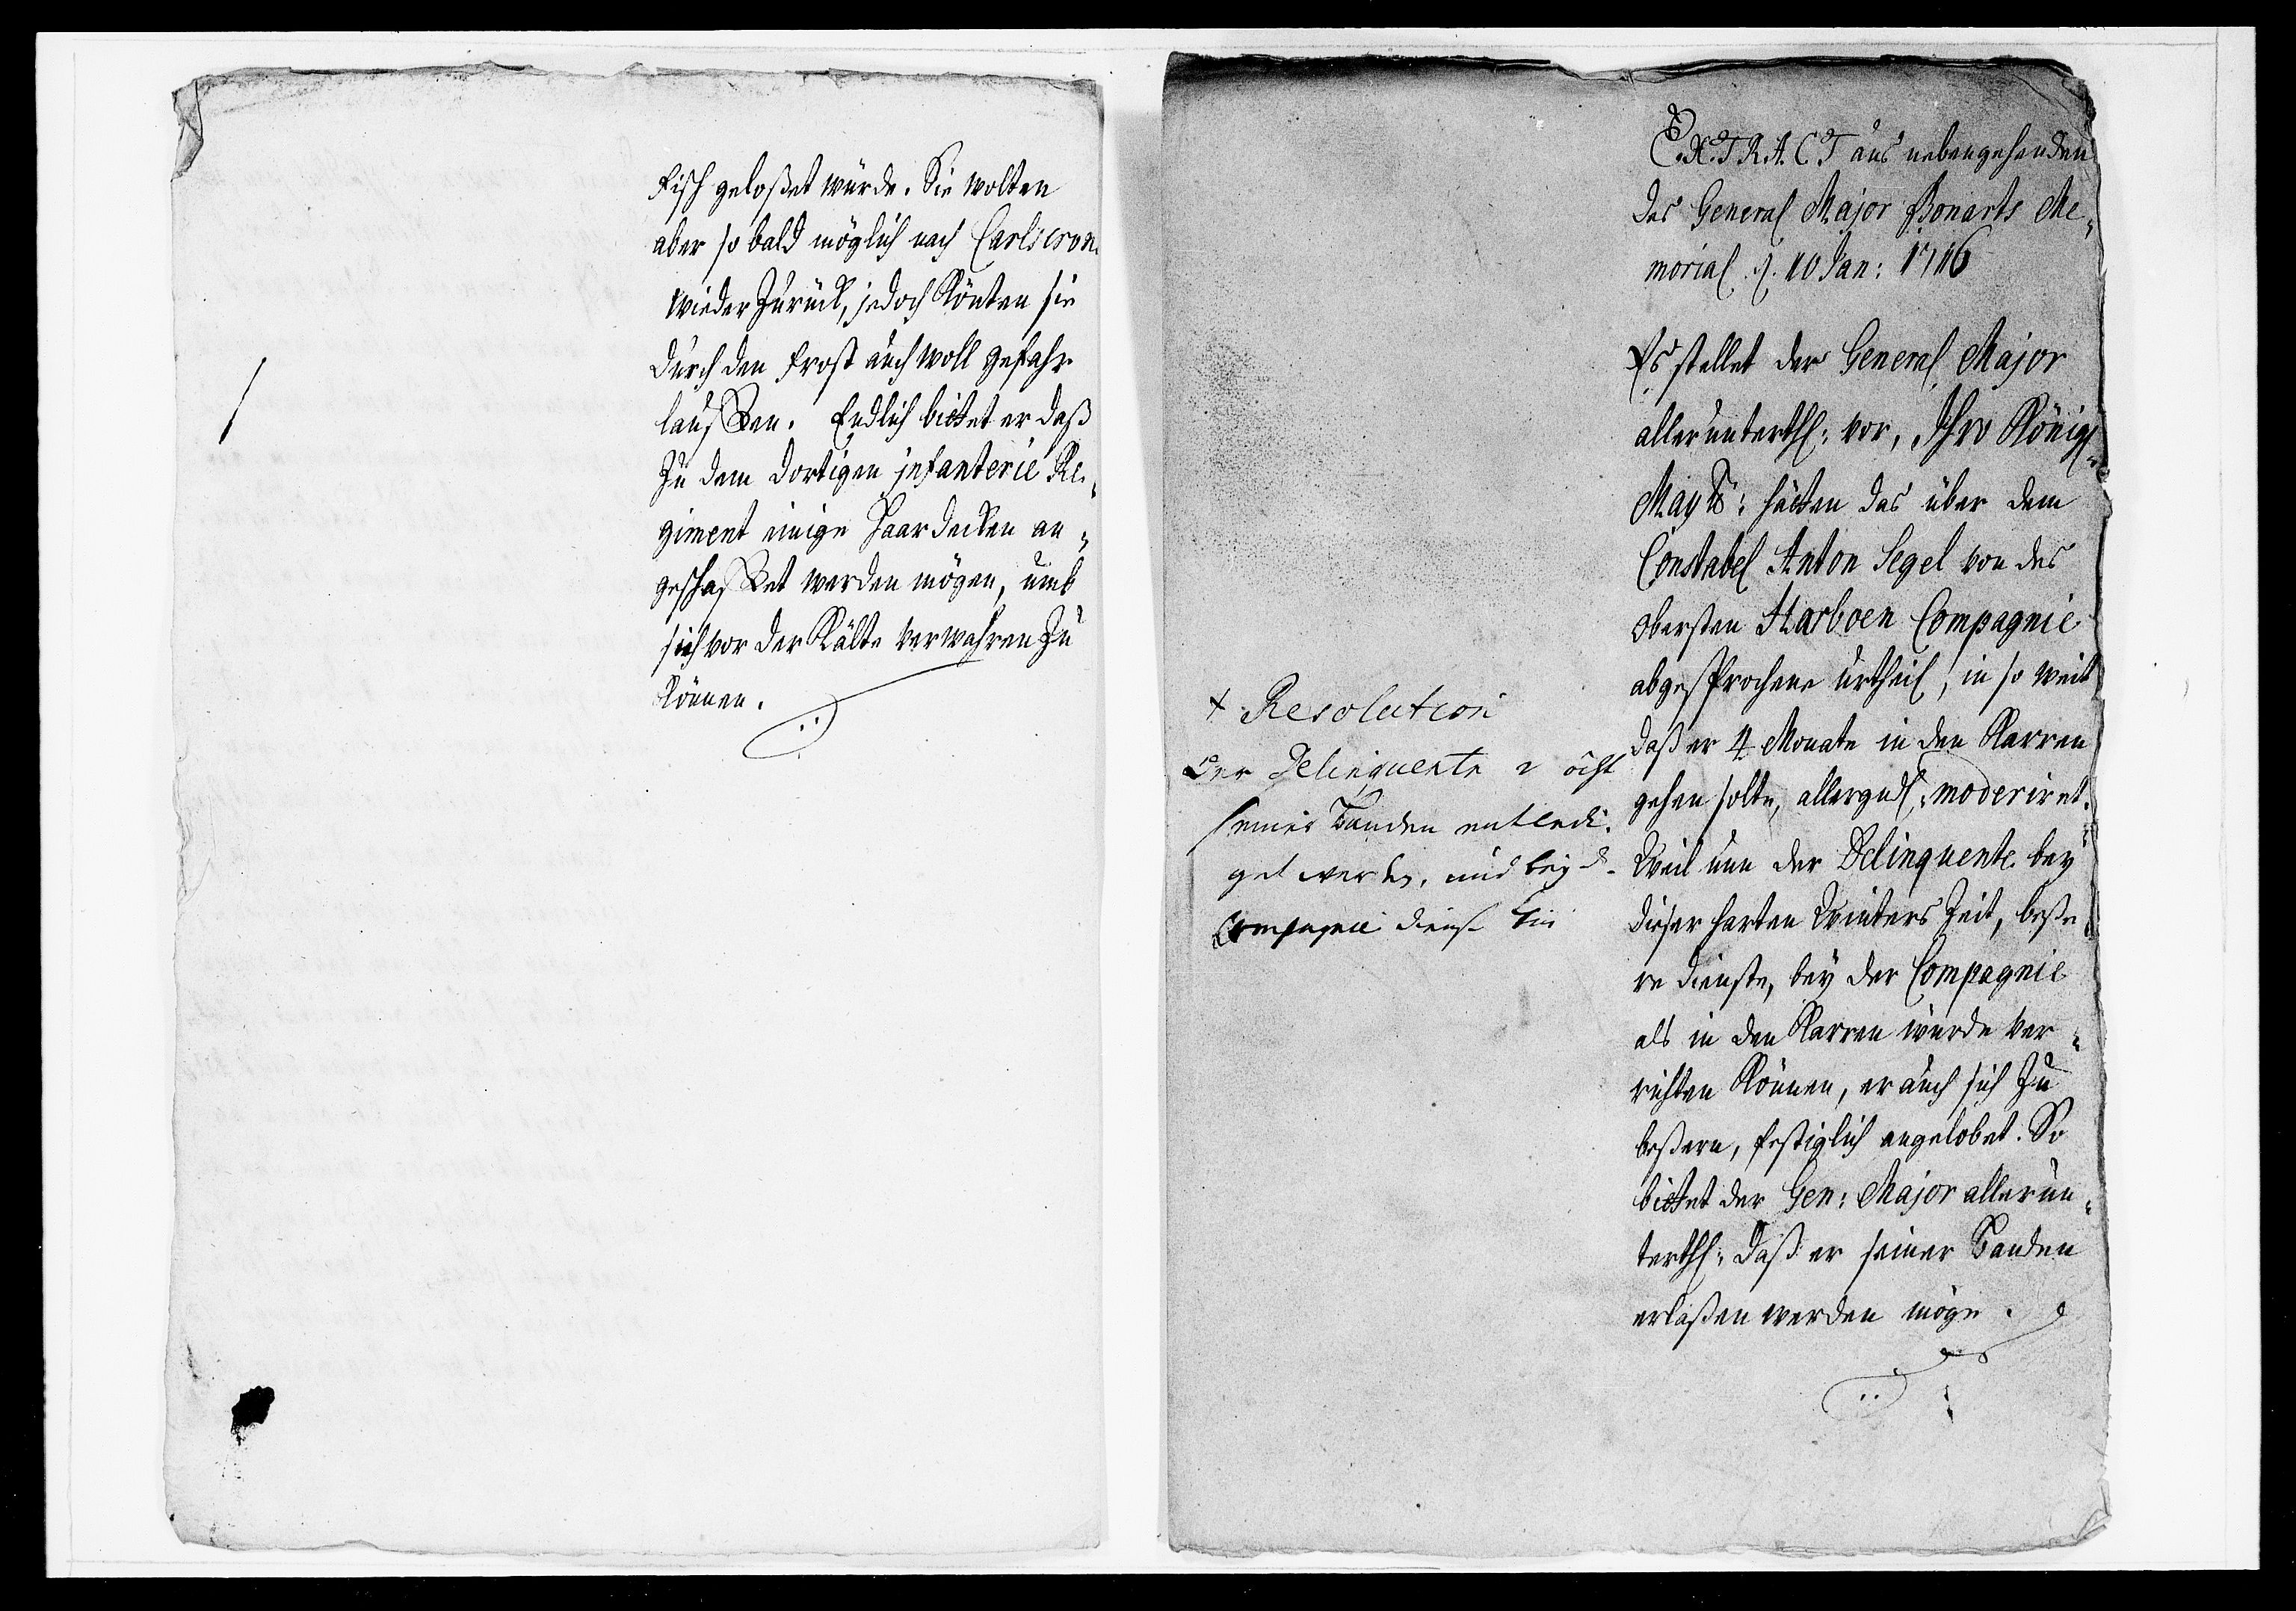 Fisch geloßet würde. Sie wolten
aber so bald möglich nach Carlscron
wieder zurück, jedoch könten sie
durch den Frost auch woll gefahr
lauffen. Endlich bittet er daß
zu dem dortigen jnfanterie Re-
giment einige Haardecken an-
geschaffet werden mögen, umb
sich vor der Kälte verwahren zu
können.
EXTRACT aus nebengehenden
des General Major Bonarts Me-
morial d. 10 Jan: 1716
Es stellet der General Major
allerunterth: vor, Ihro Königl.
Maytt: hätten das über dem
Constabel Anton Segel von des
Obersten Harboen Compagnie
abgesprochene Urtheil, in so weit
daß er 4 Monate in den Karren
gehen solte, allergndl: moderiret.
Weil nun der Delinquente bey
dieser harten Winters Zeit, beße-
re dienste, bey der Compagnie
als in den Karren würde ver-
richten können, er auch sich zu
beßern, festiglich angelobet. So
bittet der Gen: Major allerun-
terth: daß er seiner Banden
erlaßen werden möge.
+ Resolution
Der Delinquente
seiner Banden entledi-
get werden, und bey d.
Compagnie dienst